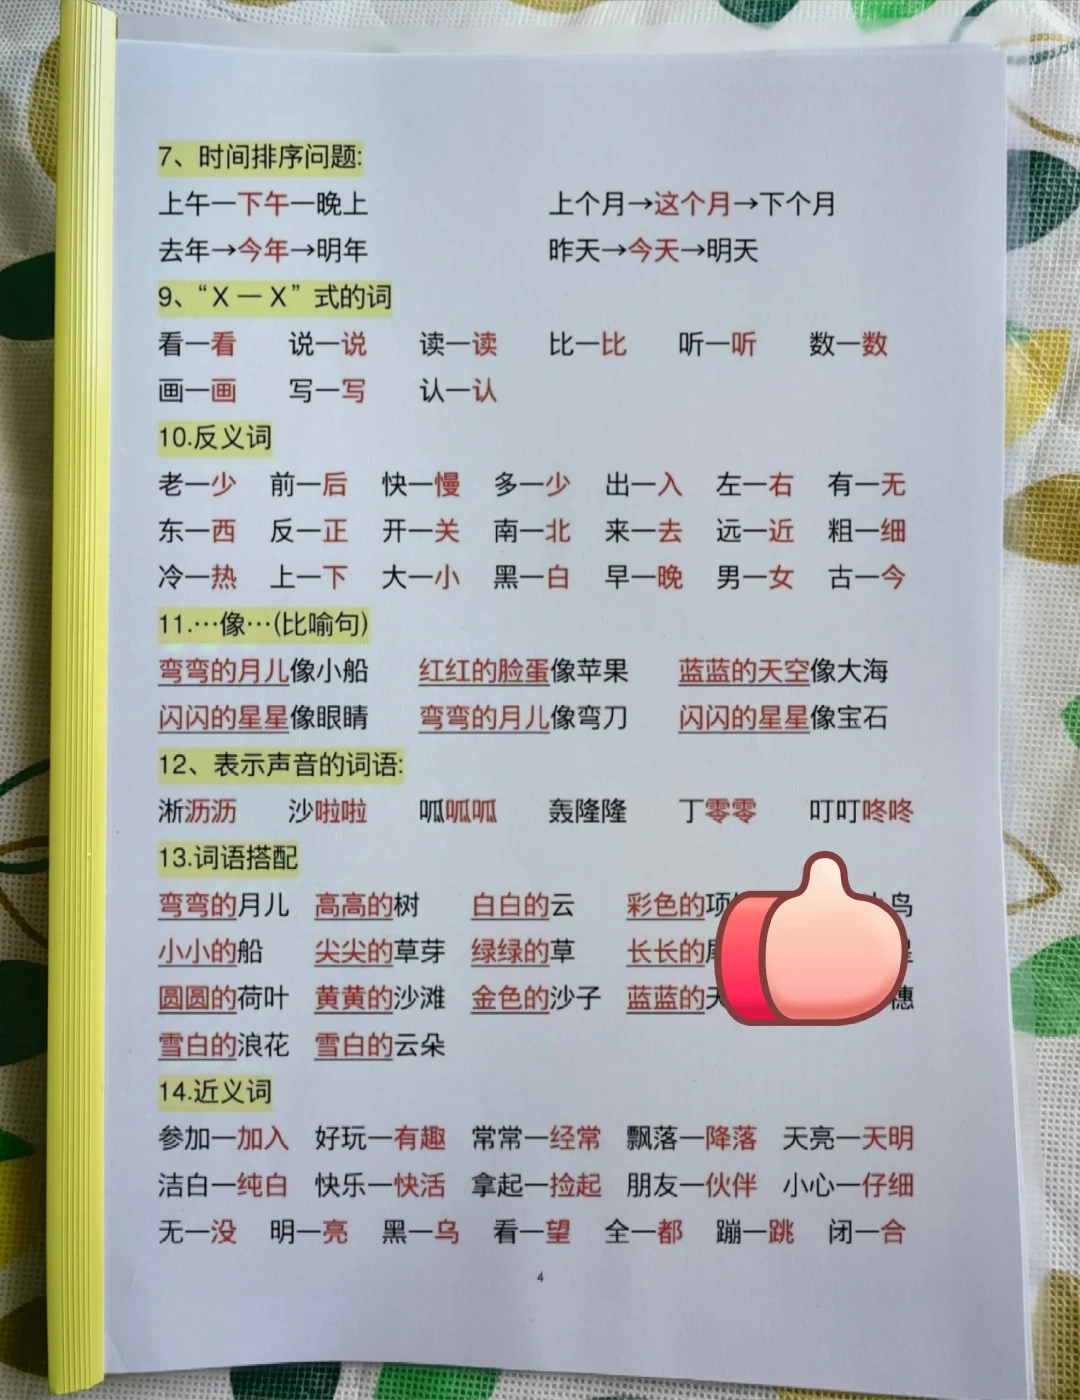 7、时间排序问题:
上午一下午一晚上 上个月→这个月→下个月
去年→今年→明年 昨天→今天→明天
9、“X 一 X”式的词
看一看 说一说 读一读 比一比 听一听 数一数
画一画 写一写 认一认
10.反义词
老一少 前一后 快一慢 多一少 出一入 左一右 有一无
东一西 反一正 开一关 南一北 来一去 远一近 粗一细
冷一热 上一下 大一小 黑一白 早一晚 男一女 古一今
11.…像…(比喻句)
弯弯的月儿像小船 红红的脸蛋像苹果 蓝蓝的天空像大海
闪闪的星星像眼睛 弯弯的月儿像弯刀 闪闪的星星像宝石
12、表示声音的词语:
淅沥沥 沙啦啦 呱呱呱 轰隆隆 丁零零 叮叮咚咚
13.词语搭配
弯弯的月儿 高高的树 白白的云 彩色的项 鸟
小小的船 尖尖的草芽 绿绿的草 长长的
圆圆的荷叶 黄黄的沙滩 金色的沙子 蓝蓝的天 穗
雪白的浪花 雪白的云朵
14.近义词
参加一加入 好玩一有趣 常常一经常 飘落一降落 天亮一天明
洁白一纯白 快乐一快活 拿起一捡起 朋友一伙伴 小心一仔细
无一没 明一亮 黑一乌 看一望 全一都 蹦一跳 闭一合
4